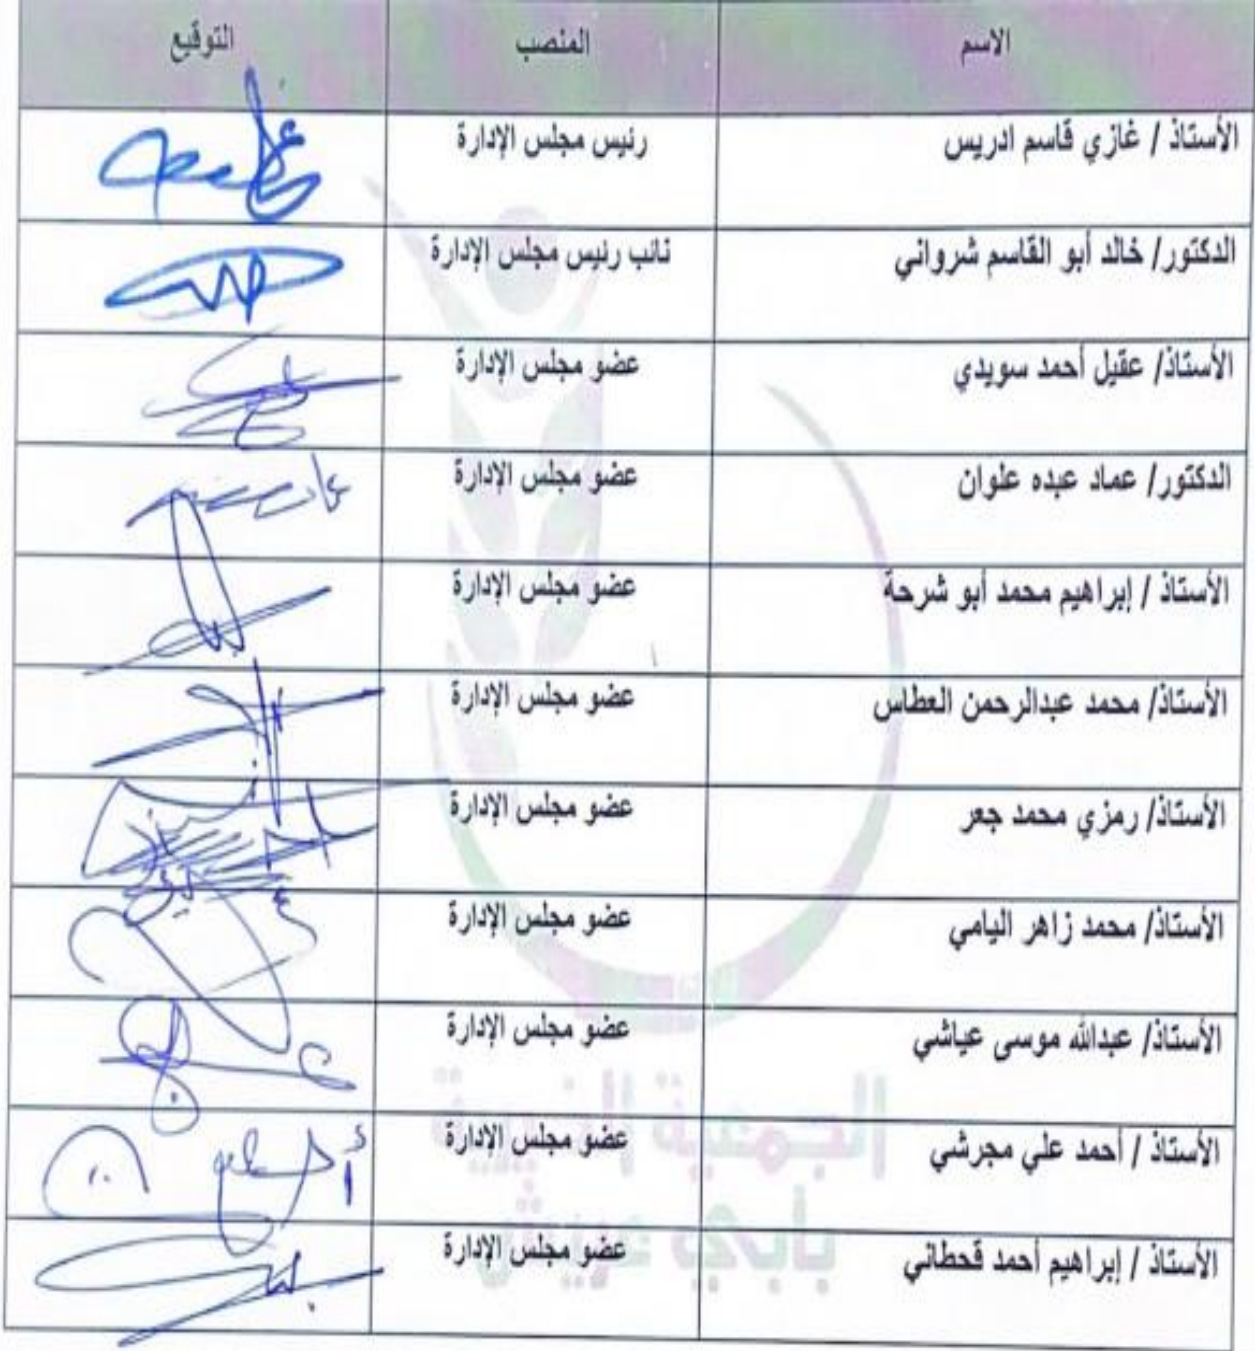 الاسم المنصب التوقيع
الأستاذ / غازي قاسم ادريس رئيس مجلس الإدارة
الدكتور/ خالد أبو القاسم شرواني نائب رئيس مجلس الإدارة
الأستاذ/ عقيل أحمد سويدي عضو مجلس الإدارة
الدكتور/ عماد عبده علوان عضو مجلس الإدارة
الأستاذ / إبراهيم محمد أبو شرحة عضو مجلس الإدارة
الأستاذ/ محمد عبدالرحمن العطاس عضو مجلس الإدارة
الأستاذ/ رمزي محمد جعر عضو مجلس الإدارة
الأستاذ/ محمد زاهر اليامي عضو مجلس الإدارة
الأستاذ/ عبدالله موسى عياشي عضو مجلس الإدارة
الأستاذ / أحمد علي مجرشي عضو مجلس الإدارة
الأستاذ / إبراهيم أحمد قحطاني عضو مجلس الإدارة